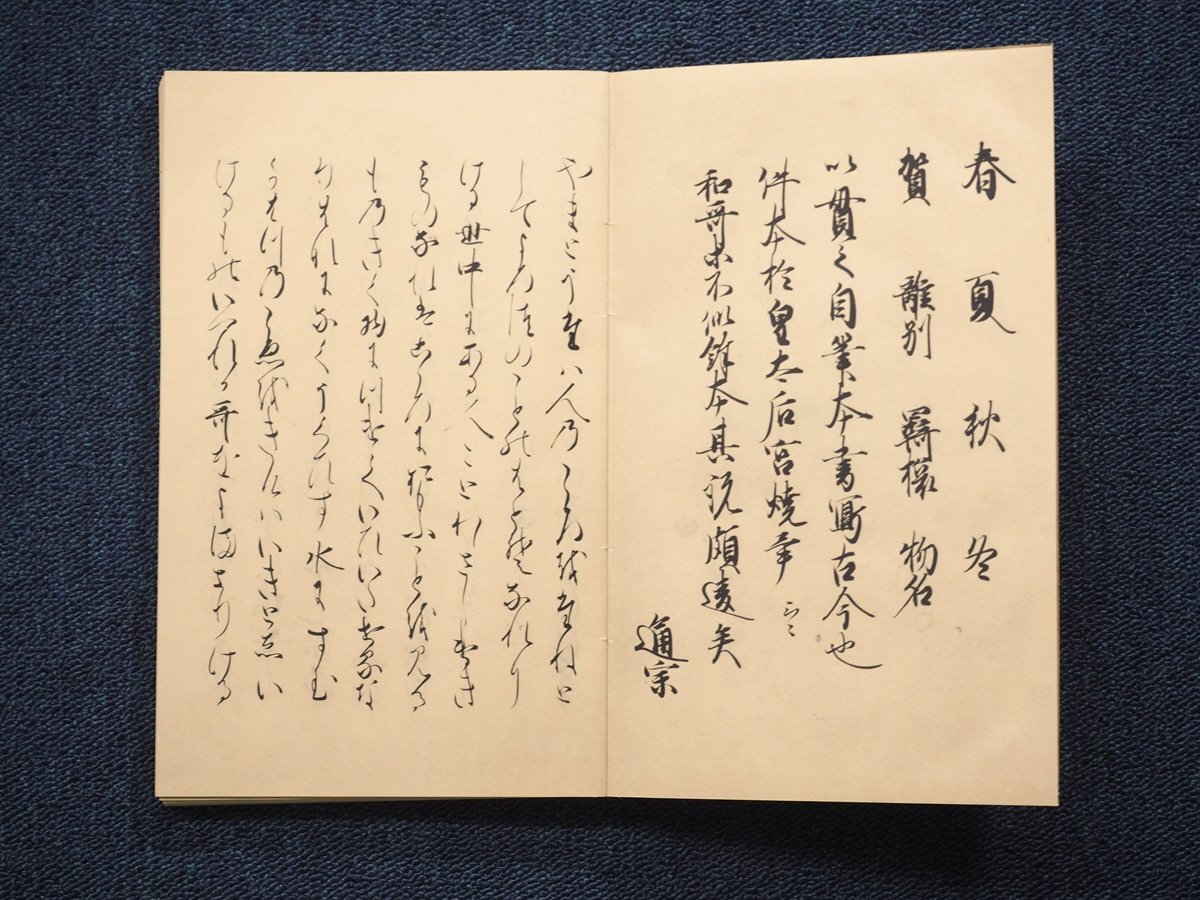 春 夏 秋 冬
賀 離別 羇旅 物名
以貫之自筆本書寫古今也
件本於皇太后宮焼畢 云々
和哥等不似餘本其説頗違矣
通宗
やまとうたハ人乃こゝろをたねと
してよろつのことのはとそなれり
ける世中にある人ことわさしけき
ものなれはこゝろにおもふことを見る
も乃きく物につけていひいたせるな
りはなになくうくひす水にすむ
かはつ乃こゑをきけハいきとしい
けるものいつれか哥をよまさりける